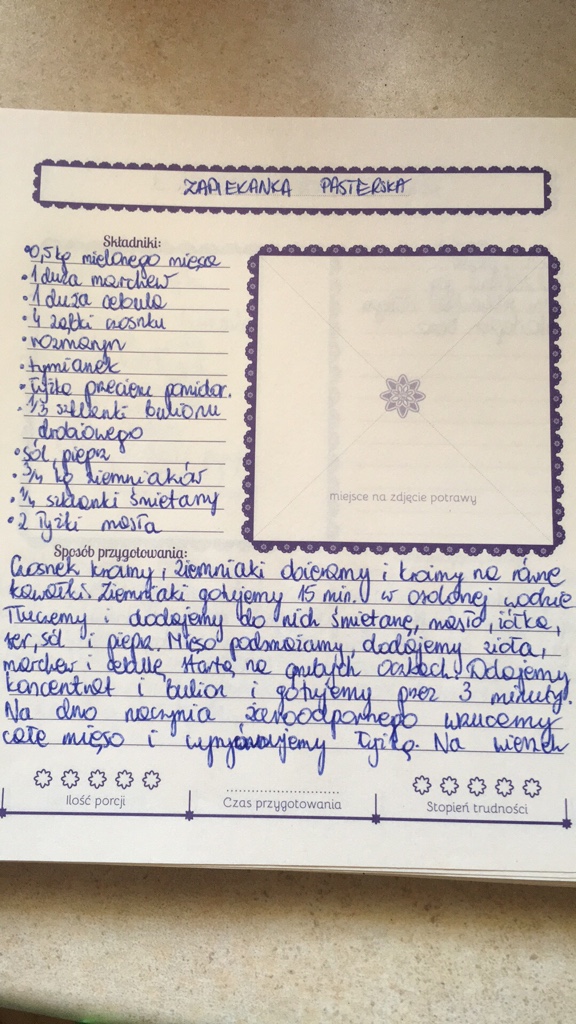 ZAPIEKANKA PASTERSKA
Składniki:
• 0,5 kg mielonego mięsa
• 1 duża marchew
• 1 duża cebula
• 4 ząbki czosnku
• rozmaryn
• tymianek
• łyżka przecieru pomidor.
• 1/3 szklanki bulionu
drobiowego
• sól, pieprz
• 3/4 kg ziemniaków
• 1/4 szklanki śmietany
• 2 łyżki masła
miejsce na zdjęcie potrawy
Sposób przygotowania:
Czosnek kroimy, ziemniaki obieramy i kroimy na równe
kawałki. Ziemniaki gotujemy 15 min. w osolonej wodzie
Tłuczemy i dodajemy do nich śmietanę, masło, żółtka,
ser, sól i pieprz. Mięso podsmażamy, dodajemy zioła,
marchew i cebulę startą na grubych oczkach. Dodajemy
koncentrat i bulion i gotujemy przez 3 minuty.
Na dno naczynia żaroodpornego wrzucamy
całe mięso i wyrównujemy łyżką. Na wierzch
Ilość porcji
Czas przygotowania
Stopień trudności